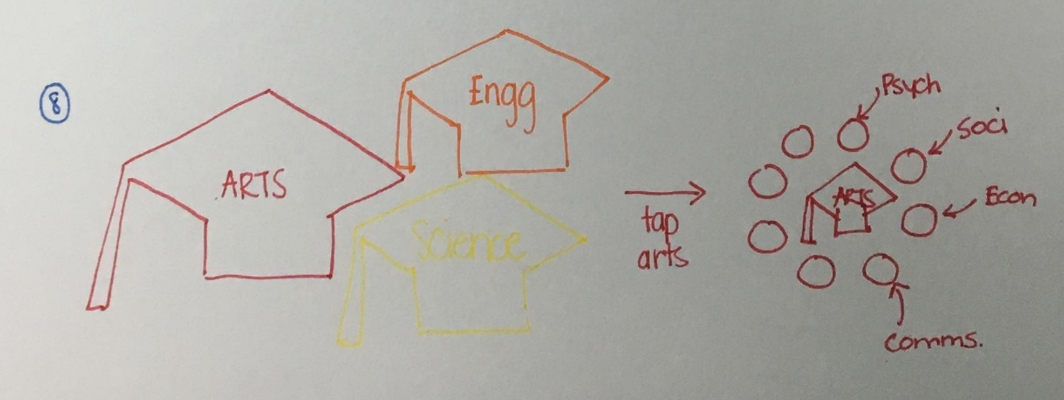 8
ARTS
Engg
Science
tap
arts
ARTS
Psych
Soci
Econ
Comms.